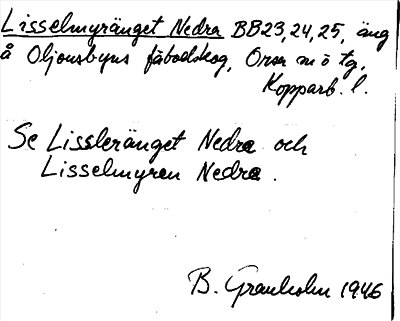 Lisselmyränget Nedra BB23, 24, 25, äng
å Oljonsbyns fäbodskog, Orsa sn o tg,
Kopparb. l.
Se Lissleränget Nedra och
Lisselmyren Nedra.
B. Granholm 1946